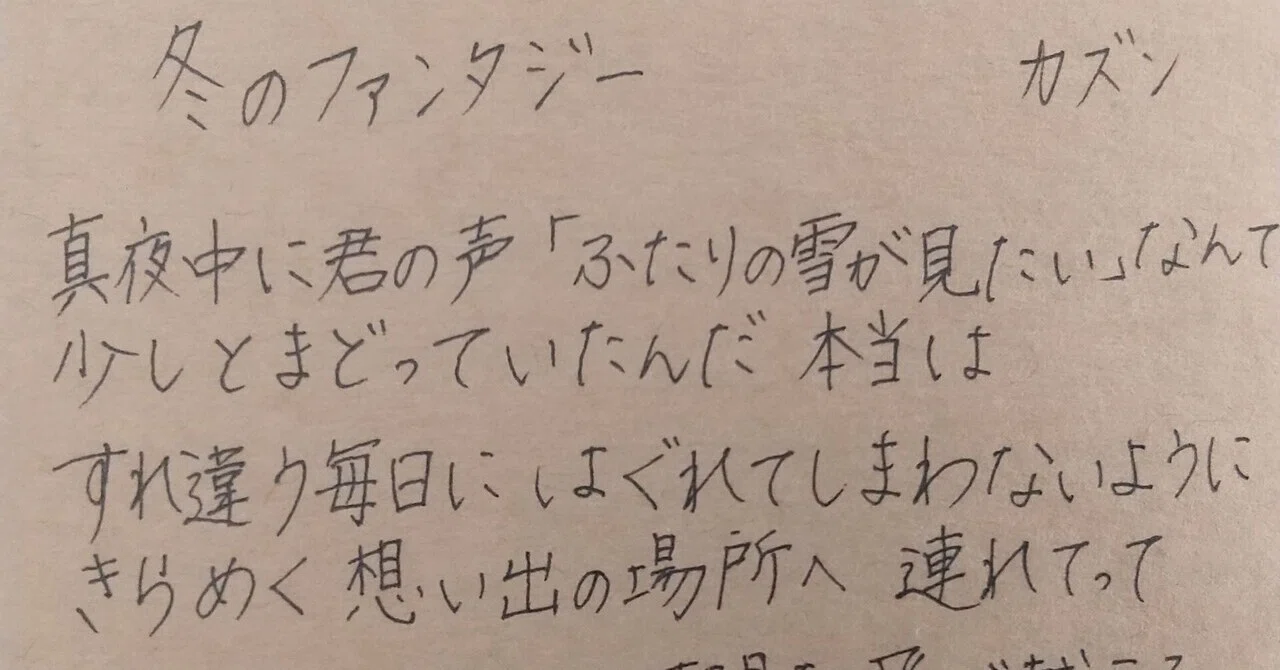 冬のファンタジー カズン
真夜中に君の声「ふたりの雪が見たい」なんて
少しとまどっていたんだ 本当は
すれ違う毎日に はぐれてしまわないように
きらめく想い出の場所へ 連れてって